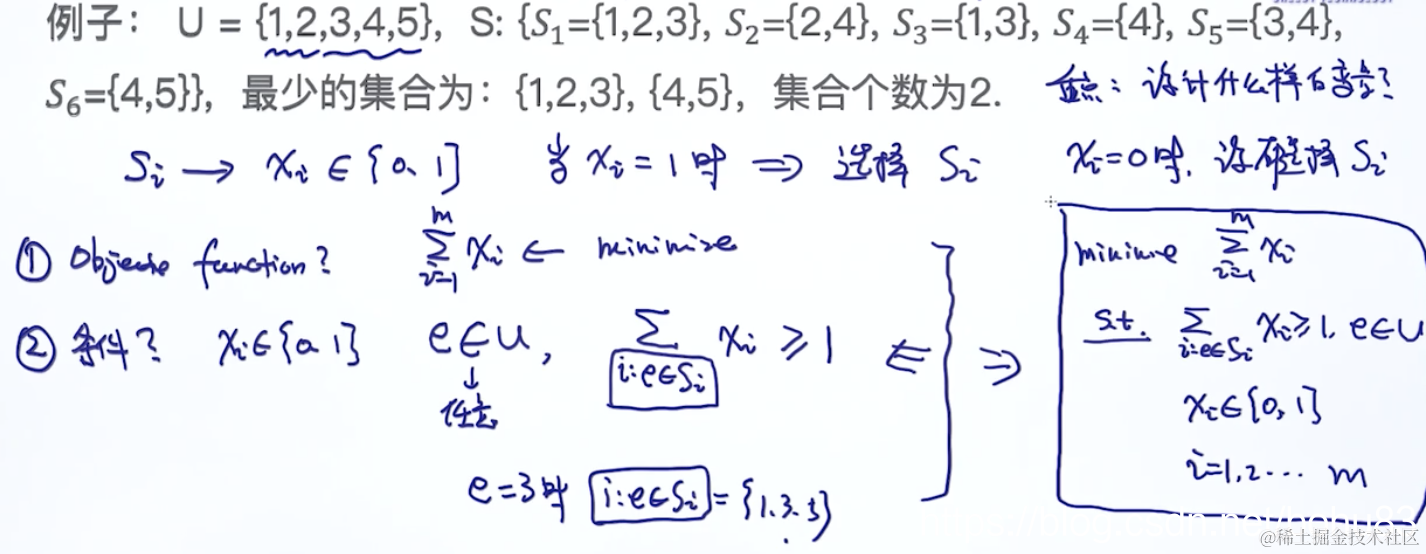 例子： U = {1,2,3,4,5}, S: {S₁={1,2,3}, S₂={2,4}, S₃={1,3}, S₄={4}, S₅={3,4},
S₆={4,5}}, 最少的集合为：{1,2,3}, {4,5}, 集合个数为2.
重点：设计什么样的变量？
Si → xi ∈ {0, 1} 当 xi = 1 时 ⇒ 选择 Si xi = 0 时, 没有选择 Si
① Objective function? ∑_{i=1}^{m} xi ← minimize
② 条件? xi ∈ {0, 1} e ∈ U, ∑_{i:e∈Si} xi ≥ 1 ⇐ ⇒
↓
任意
e = 3 时 i:e∈Si = {1, 3, 5}
minimize ∑_{i=1}^{m} xi
s.t. ∑_{i:e∈Si} xi ≥ 1, e ∈ U
xi ∈ {0, 1}
i = 1, 2 ⋯ m
@稀土掘金技术社区